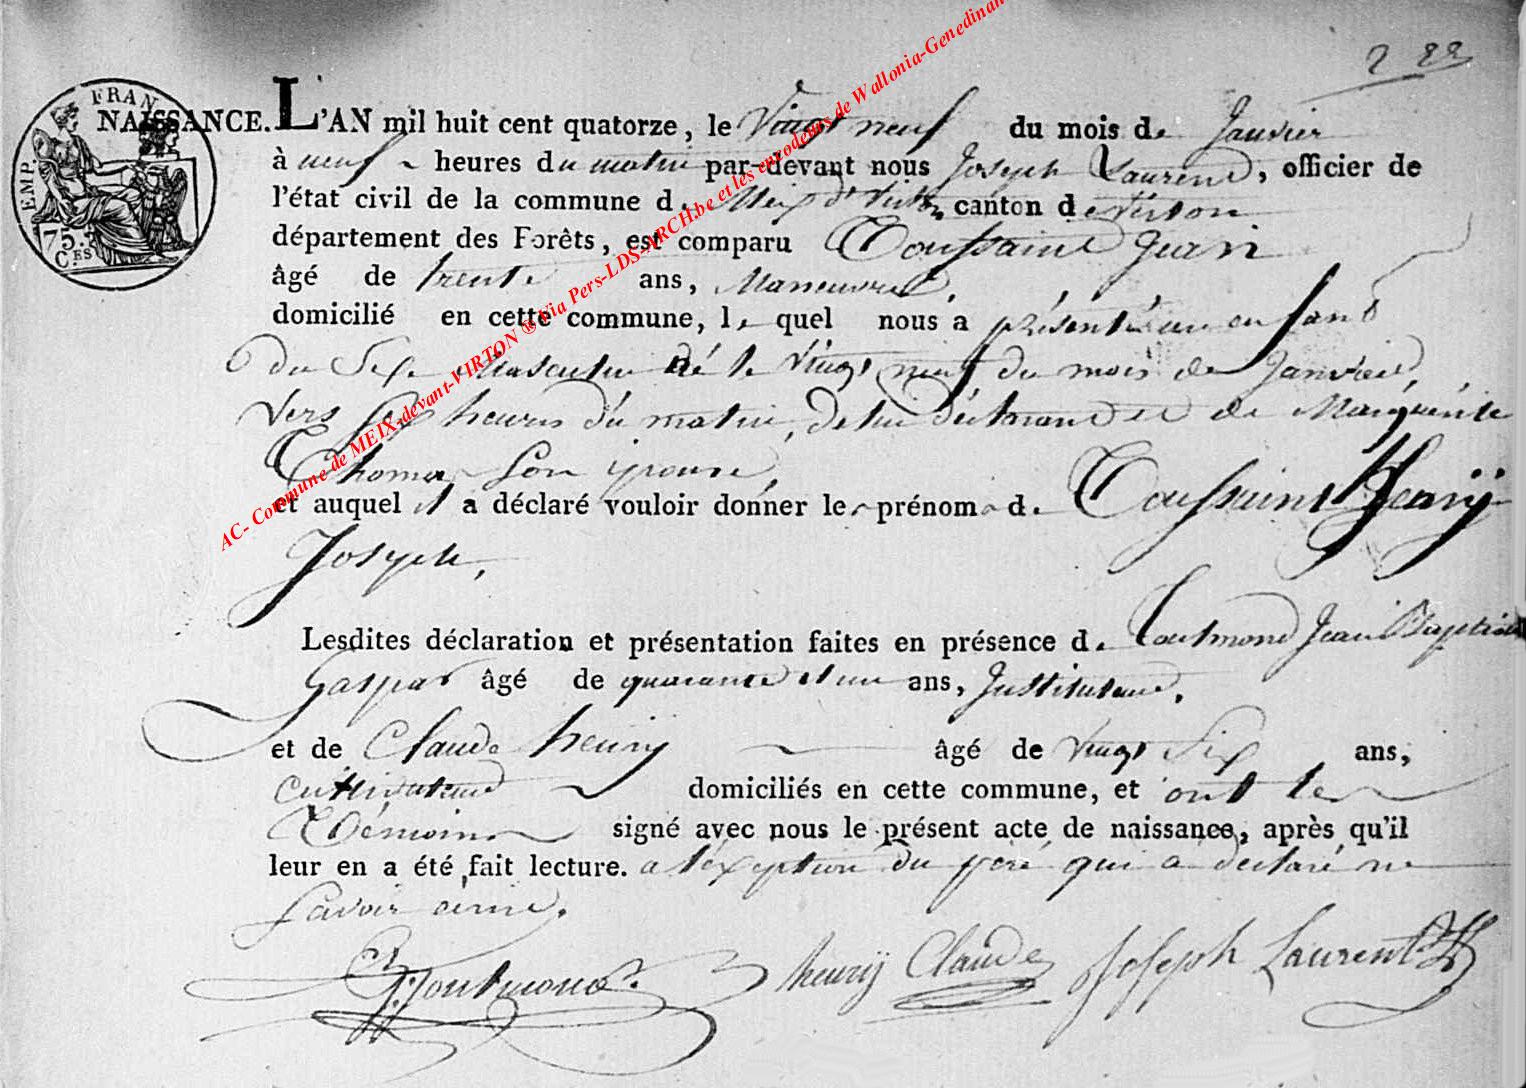 2 22
EMP. FRAN
75. CES
NAISSANCE. L'AN mil huit cent quatorze, le Vingt neuf du mois de Janvier
à neuf heures du matin par-devant nous Joseph Laurent, officier de
l'état civil de la commune de Meix dt Virton canton de Virton
département des Forêts, est comparu Toussaint Jean
âgé de trente ans, Maneuvre,
domicilié en cette commune, le quel nous a présenté un enfant
du Sexe Masculin né le Vingt neuf du mois de Janvier,
Vers Six heures du matin, de lui déclarant et de Marguerite
Thomas Son épouse,
et auquel il a déclaré vouloir donner les prénoms de Toussaint Henrij
Joseph,
Lesdites déclaration et présentation faites en présence de Toutmond Jean Baptiste
Gaspar âgé de quarante et un ans, Instituteur,
et de Claude henrij âgé de vingt Six ans,
cultivateur domiciliés en cette commune, et ont les
Témoins signé avec nous le présent acte de naissance, après qu'il
leur en a été fait lecture. a l'éxeption du père qui a declaré ne
Savoir ecrire.
Toutmond henrij Claude Joseph Laurent
AC- Commune de MEIX-devant-VIRTON ® Via Pers-LDS-ARCH.be et les encodeurs de Wallonia-Genedinan